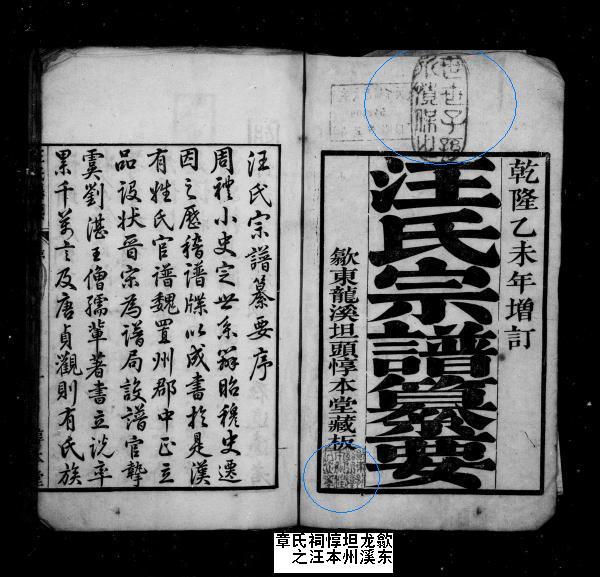 世世子孫
乾隆乙未年增訂
汪氏宗譜纂要
歙東龍溪坦頭惇本堂藏板
汪氏宗譜纂要序
周禮小史定世系辯昭穆史遷
因之歷稽譜牒以成書於是漢
有姓氏官譜魏置州郡中正立
品設狀晉宗為譜局設譜官摯
虞劉湛王僧孺輩著書立說率
累千萬言及唐貞觀則有氏族
歙东
龙溪
坦州
惇本
祠汪
氏之
章